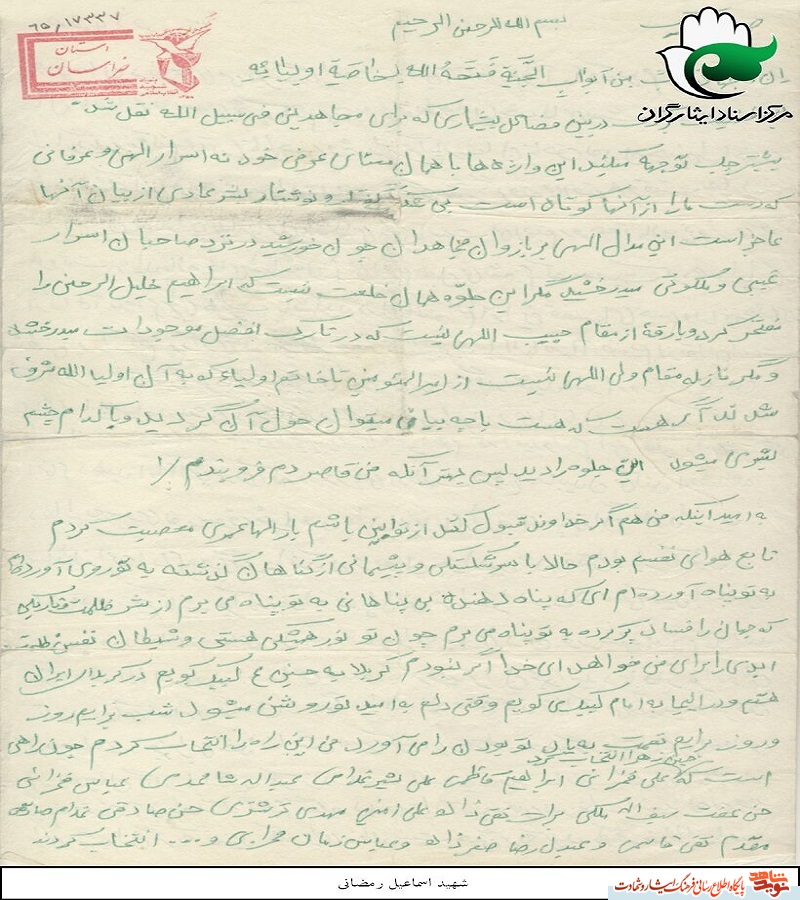 ۶۵/۱۷۳۳۷
بسم الله الرحمن الرحیم
استان
خراسان
مرکز اسناد ایثارگران
ان من ابواب الجنة فتحه الله لخاصة اولیائه
در بین فضائل بیشماری که برای مجاهدین فی سبیل الله نقل شده
بیشتر جلب توجه میکند این واژه ها با همان معنای عرفی خود نه اسرار الهی و عرفانی
که دست ما را از آنها کوتاه است بی شک و نوشتار بشر عادی از بیان آنها
عاجز است این مدال الهی بر بازوان مجاهدان چون خورشید در نزد صاحبان اسرار
غیبی و ملکوتی میدرخشد مگر این جلوه همان خلعت نیست که ابراهیم خلیل الرحمن را
مفتخر کرد و بارقة از مقام حبیب اللهی نیست که در تارک افضل موجودات میدرخشد
و مگر نازله مقام ولی اللهی نیست از امیر المؤمنین تا خاتم اولیاء که به آن اولیا الله شرف
شده اند اگر هست که هست با چه بیانی میتوان حول آن گردید و با کدام چشم
بشری میشود این جلوه را دید پس بهتر آنکه من قاصر دم فرو بندم
به امید اینکه من هم اگر خداوند قبول کند از توابین باشم بار الها عمری معصیت کردم
تابع هوای نفسم بودم حالا با سرشکستگی و پشیمانی از گناهان گذشته به تو روی آورده
به تو پناه آورده ام ای که پناه دهنده بی پناهانی به تو پناه می برم از شر ظلمت و تاریکی
که جهان را پر کرده به تو پناه می برم چون تو نور همیشگی هستی و شیطان نفس ظلمت
ابدی را برای من خواهد ای خدا اگر نبودم کربلا به حسین ع لبیک گویم در کربلای ایران
هستم و در اینجا به امام لبیک می گویم وقتی دلم به امید تو روشن میشود شب برایم روز
و روز برایم نعمت به یاد تو بودن را می آورد من این راه را انتخاب کردم چون راهی
حسین زهرا انتخاب کرد
است که علی فخرانی ابراهیم کاظمی علی عبدالله شامحمدی عباس فخرانی
حسن عفت سیف اله ملکی برات نقی زاده علی مهدی حسن صادقی
مقدم تقی قاسمی و عبدل رضا صفرزاده و عباس زمان محرابی و ... انتخاب کردند
شهید اسماعیل رمضانی
نوید شاهد
پایگاه اطلاع رسانی فرهنگ ایثار و شهادت